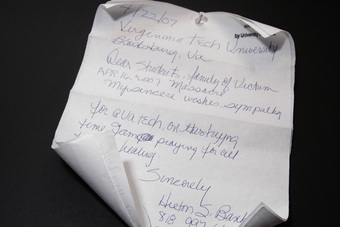 4/22/07
Virginia Tech University
Blacksburg, Va
Dear Students, family of Victims
APR 16 2007 Massacre
My sincere wishes, sympathy
for @Va Tech, on this trying
time I am praying for all
healing
Sincerely
S.
818 997